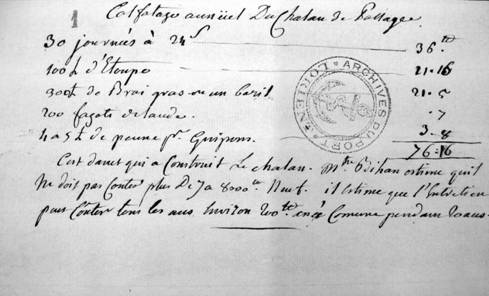 1
Calfatage annuel Du Chalan de Passage
30 journées à 24ˢ 36.ᵗᵗ
100 ₶ d'Etoupe 21.16
300 ₶ de Brai gras ou un baril 21.5
200 fagots de lande .7
4 a 5 ₶ de penne pʳ Guipons 3.8
76.16
C'est danet qui a Construit Le chalan. Mʳ estime qu'il
Ne doit pas Couter plus De 7 a 8000ᵗᵗ Neuf. il Estime que l'Entretien
peut Couter tous les ans Environ 200ᵗᵗ année Comune pendant 20 ans.
ARCHIVES DU PORT LORIENT